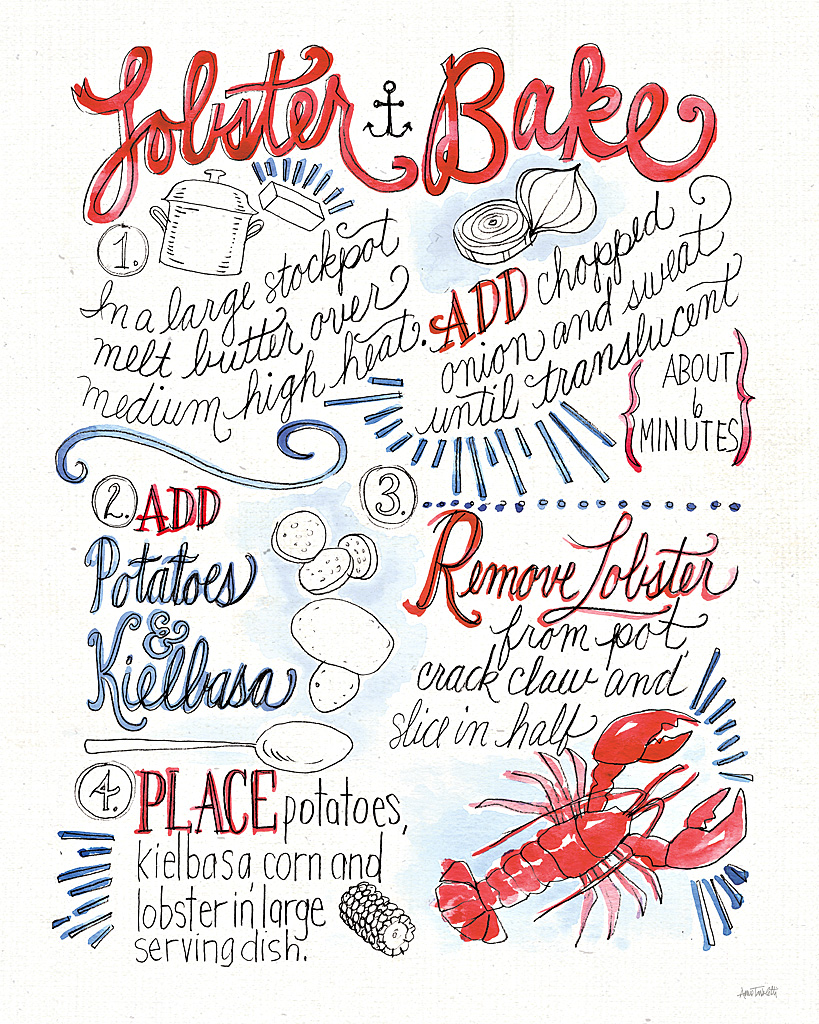 Lobster Bake
1.
In a large stockpot
melt butter over
medium high heat.
ADD chopped
onion and sweat
until translucent
ABOUT
6
MINUTES
2. ADD
Potatoes
&
Kielbasa
3.
Remove Lobster
from pot,
crack claw and
slice in half
4. PLACE potatoes,
kielbasa, corn and
lobster in large
serving dish.